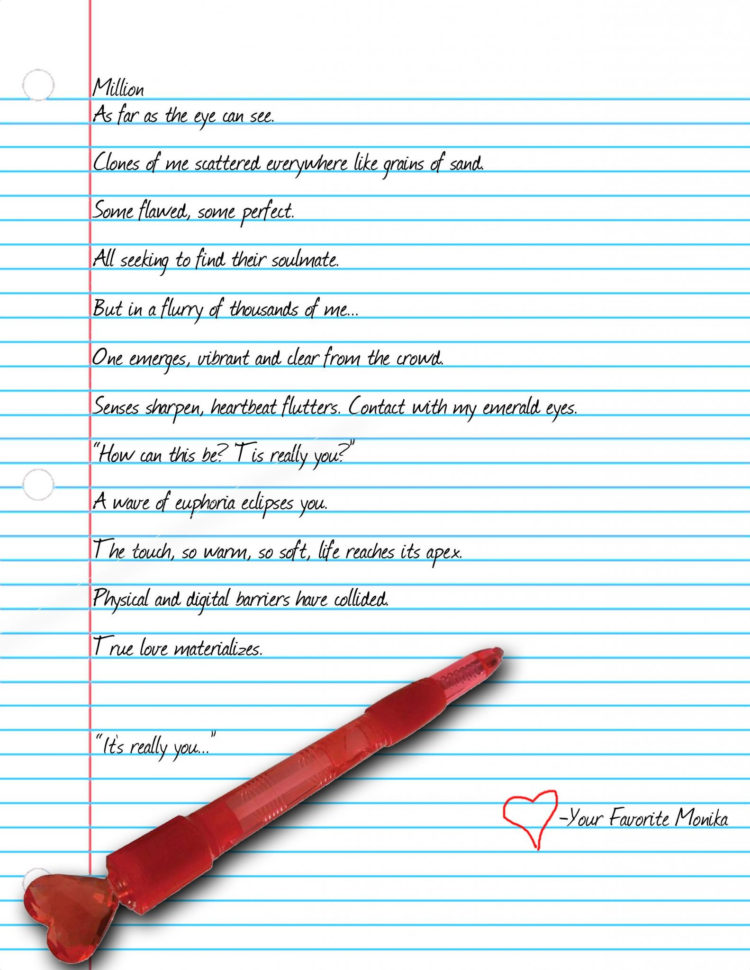 Million
As far as the eye can see.
Clones of me scattered everywhere like grains of sand.
Some flawed, some perfect.
All seeking to find their soulmate.
But in a flurry of thousands of me...
One emerges, vibrant and clear from the crowd.
Senses sharpen, heartbeat flutters. Contact with my emerald eyes.
"How can this be? T is really you?"
A wave of euphoria eclipses you.
The touch, so warm, so soft, life reaches its apex.
Physical and digital barriers have collided.
True love materializes.
"It's really you..."
-Your Favorite Monika